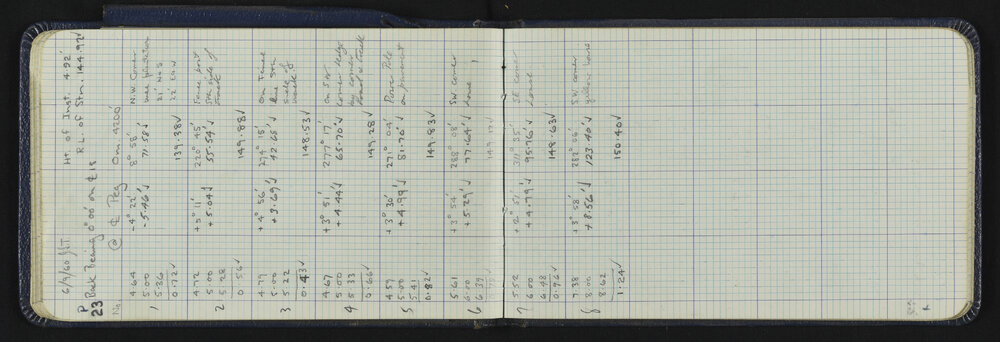 6/9/60 Ht of Inst. 4.92'
P R.L. of Stn. 144.92✓
23 Back Bearing 0°00' on ℄ 18
No. @ ℄ Peg Om. 4200'
4.64 -4° 22' 8° 58' N.W. Corner
5.00 -5.46'✓ 71.58✓
5.36 21' N & S
1 0.72✓ 139.38✓ 22' E & W
4.72 +5° 11' 220° 45' Fence
5.00 +5.04✓ 55.54✓ Sth side of
5.28 track
2 0.56✓ 149.88✓
4.79 +4° 56' 274° 15' On Fence
5.00 +3.69✓ 42.65✓ line Sth
5.22 side of
3 0.43✓ 148.53✓ track
4.67 +3° 51' 277° 17' on SW
5.00 +4.44✓ 65.70✓ corner
5.33 by corner
4 0.66✓ 149.28✓
4.59 +3° 30' 27° 04' Power Pole
5.00 +4.99'✓ 81.70✓
5.41
5 0.82✓ 149.83✓
5.61 +3° 54' 288° 08' SW corner
6.00 +5.29'✓ 77.64✓ House
6.39
6 149.13✓
5.52 +2° 51' 35' SE corner
6.00 +4.79✓ 95.76✓ House
6.48
7 0.96✓ 148.63✓
7.38 +3° 58' 282° 56' SW corner
8.00 +8.56'✓ 123.40✓
8.62
8 1.24✓ 150.40✓